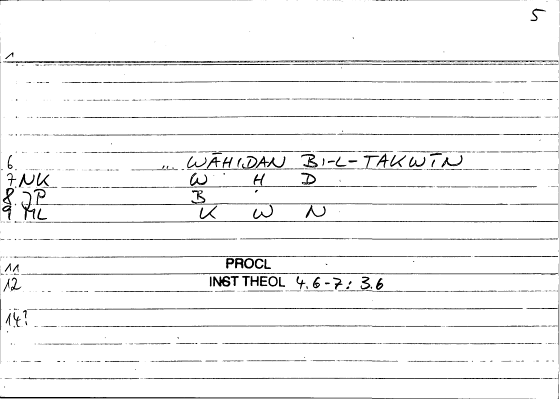 5
1
6 .. WĀHIDAN BI-L-TAKWĪN
7 NK W H D
8 JP B
9 ML K W N
11 PROCL
12 INST THEOL 4.6-7: 3.6
14?